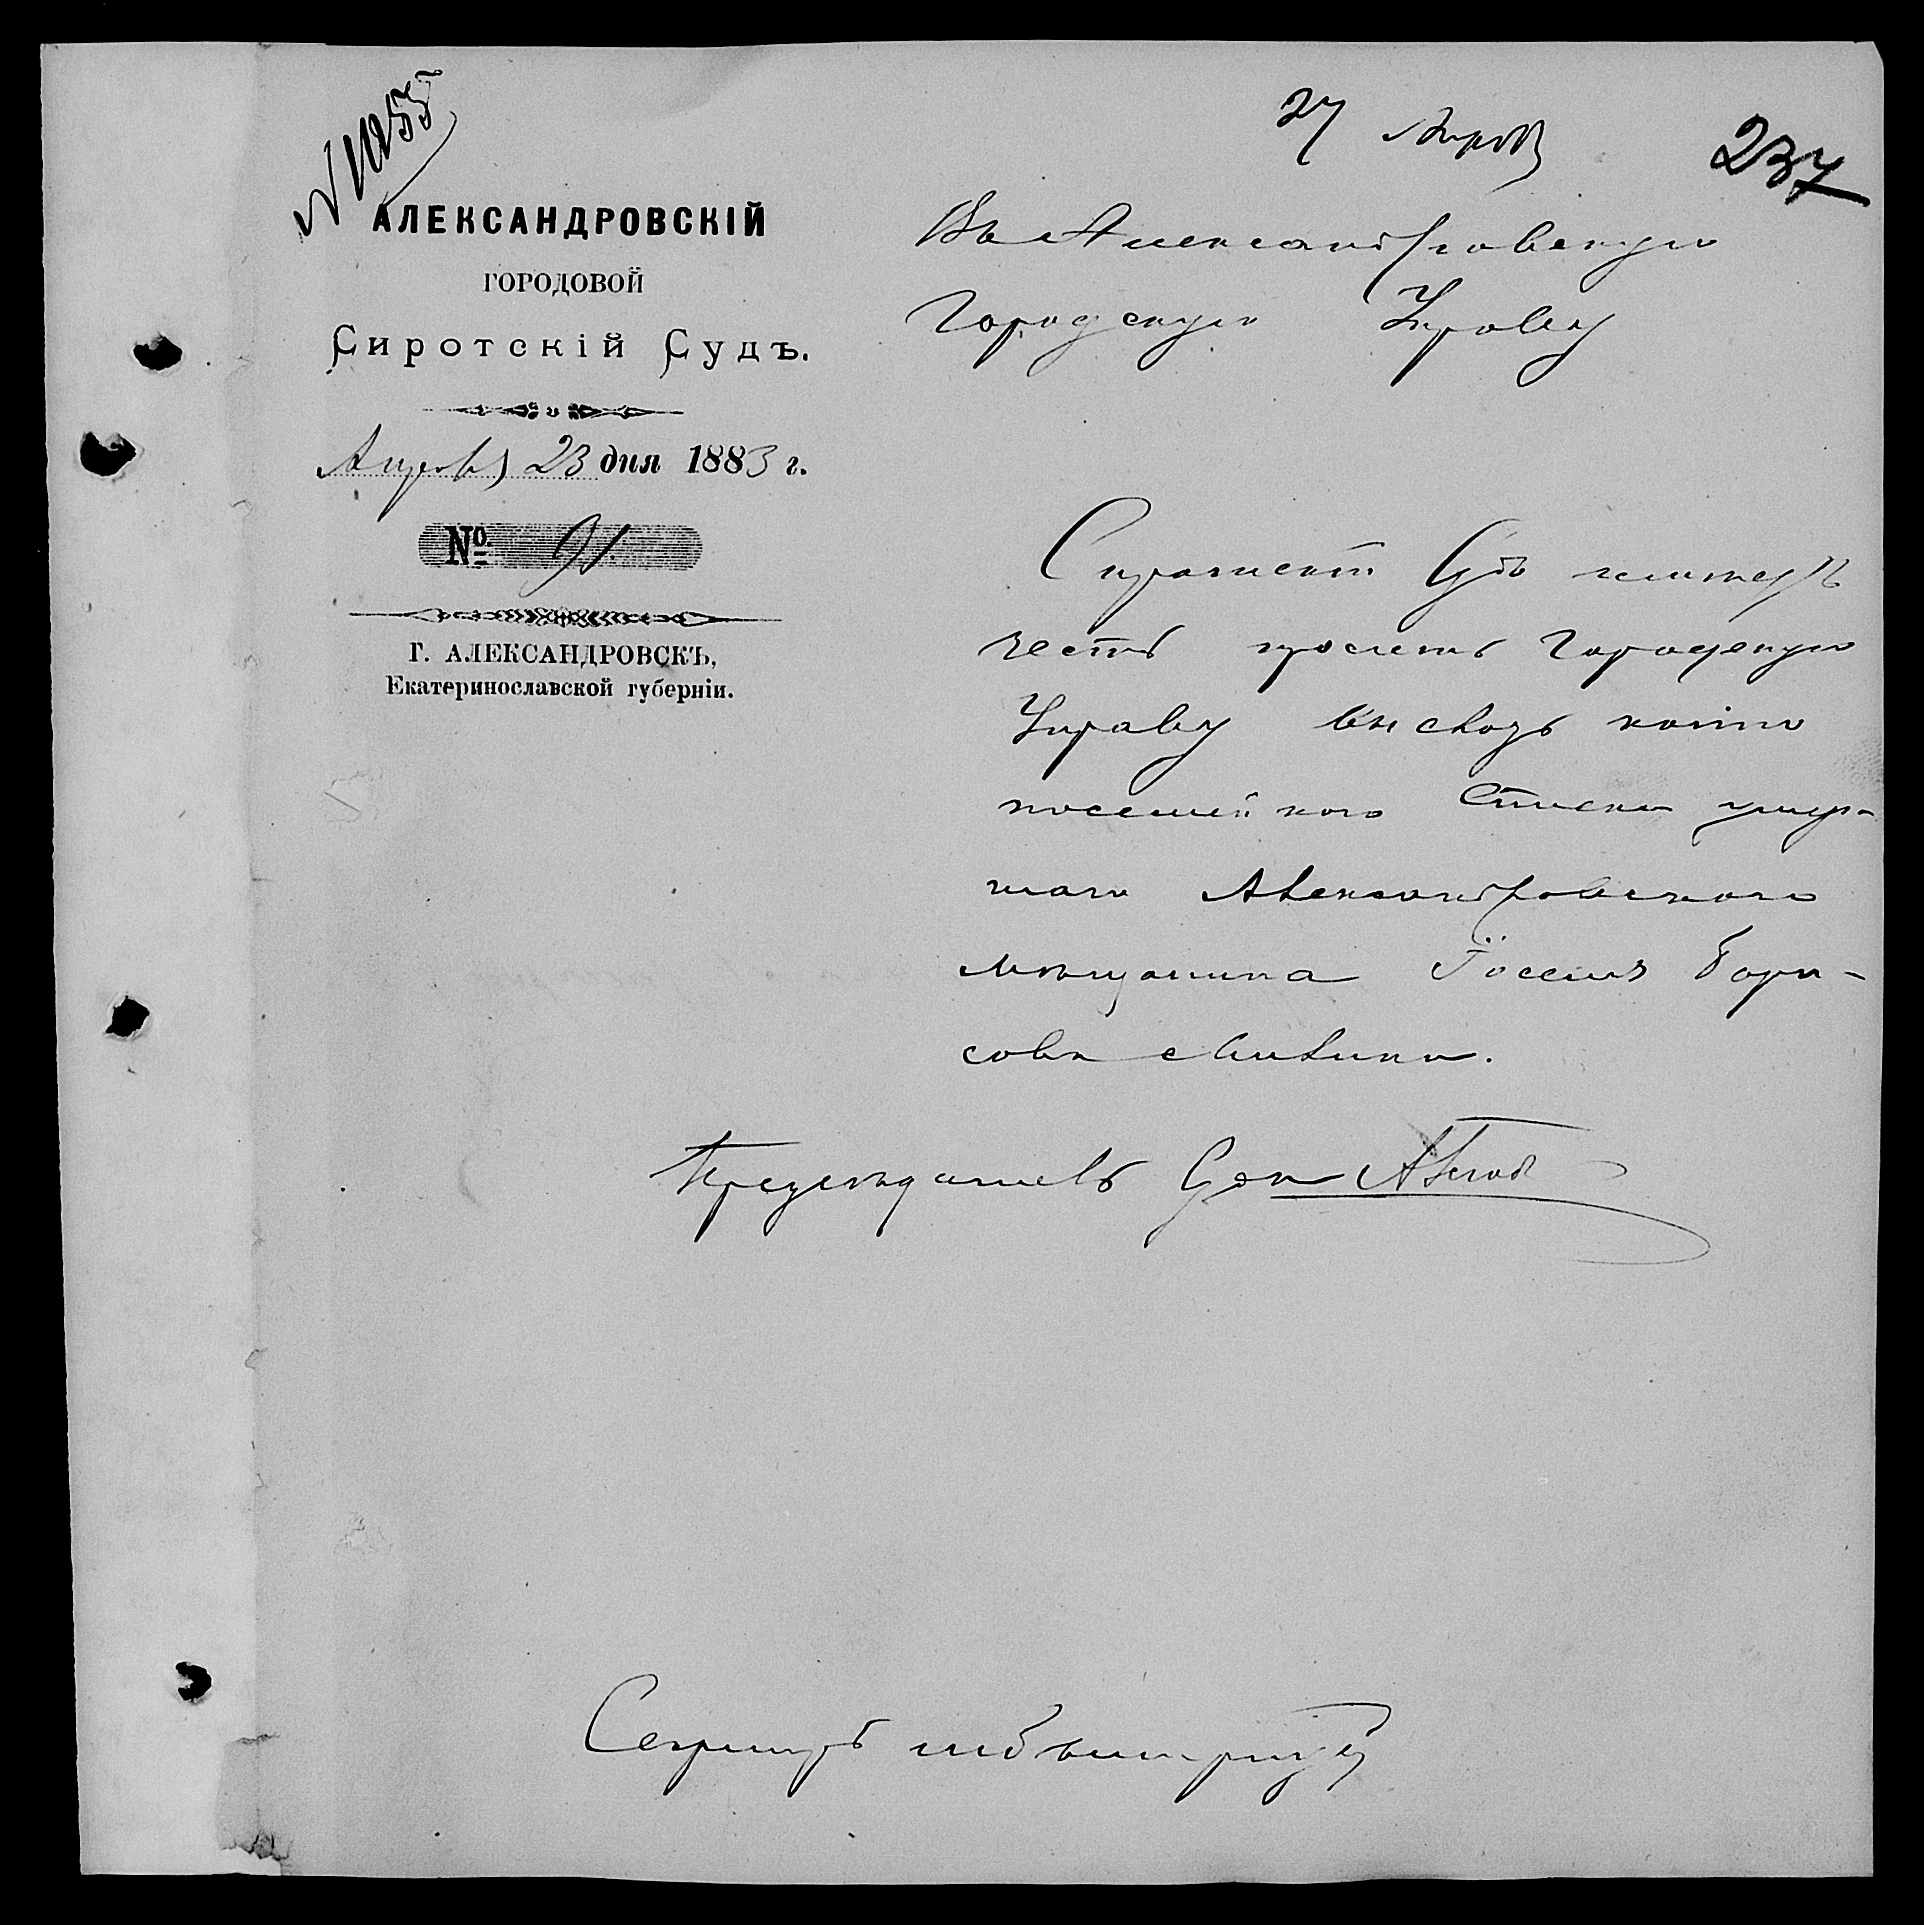 № 1255
27 Апрѣля
237
АЛЕКСАНДРОВСКІЙ
ГОРОДОВОЙ
Сиротскій Судъ.
Апрѣля 23 дня 1883 г.
№ 91
Г. АЛЕКСАНДРОВСКЪ,
Екатеринославской губерніи.
Въ Александровскую
Городскую Управу
Сиротскій Судъ имѣетъ
честь просить Городскую
Управу выслать копію
посемейнаго списка умер-
шаго Александровскаго
мѣщанина Іосели Бори-
сова
Предсѣдатель Суда
Секретарь